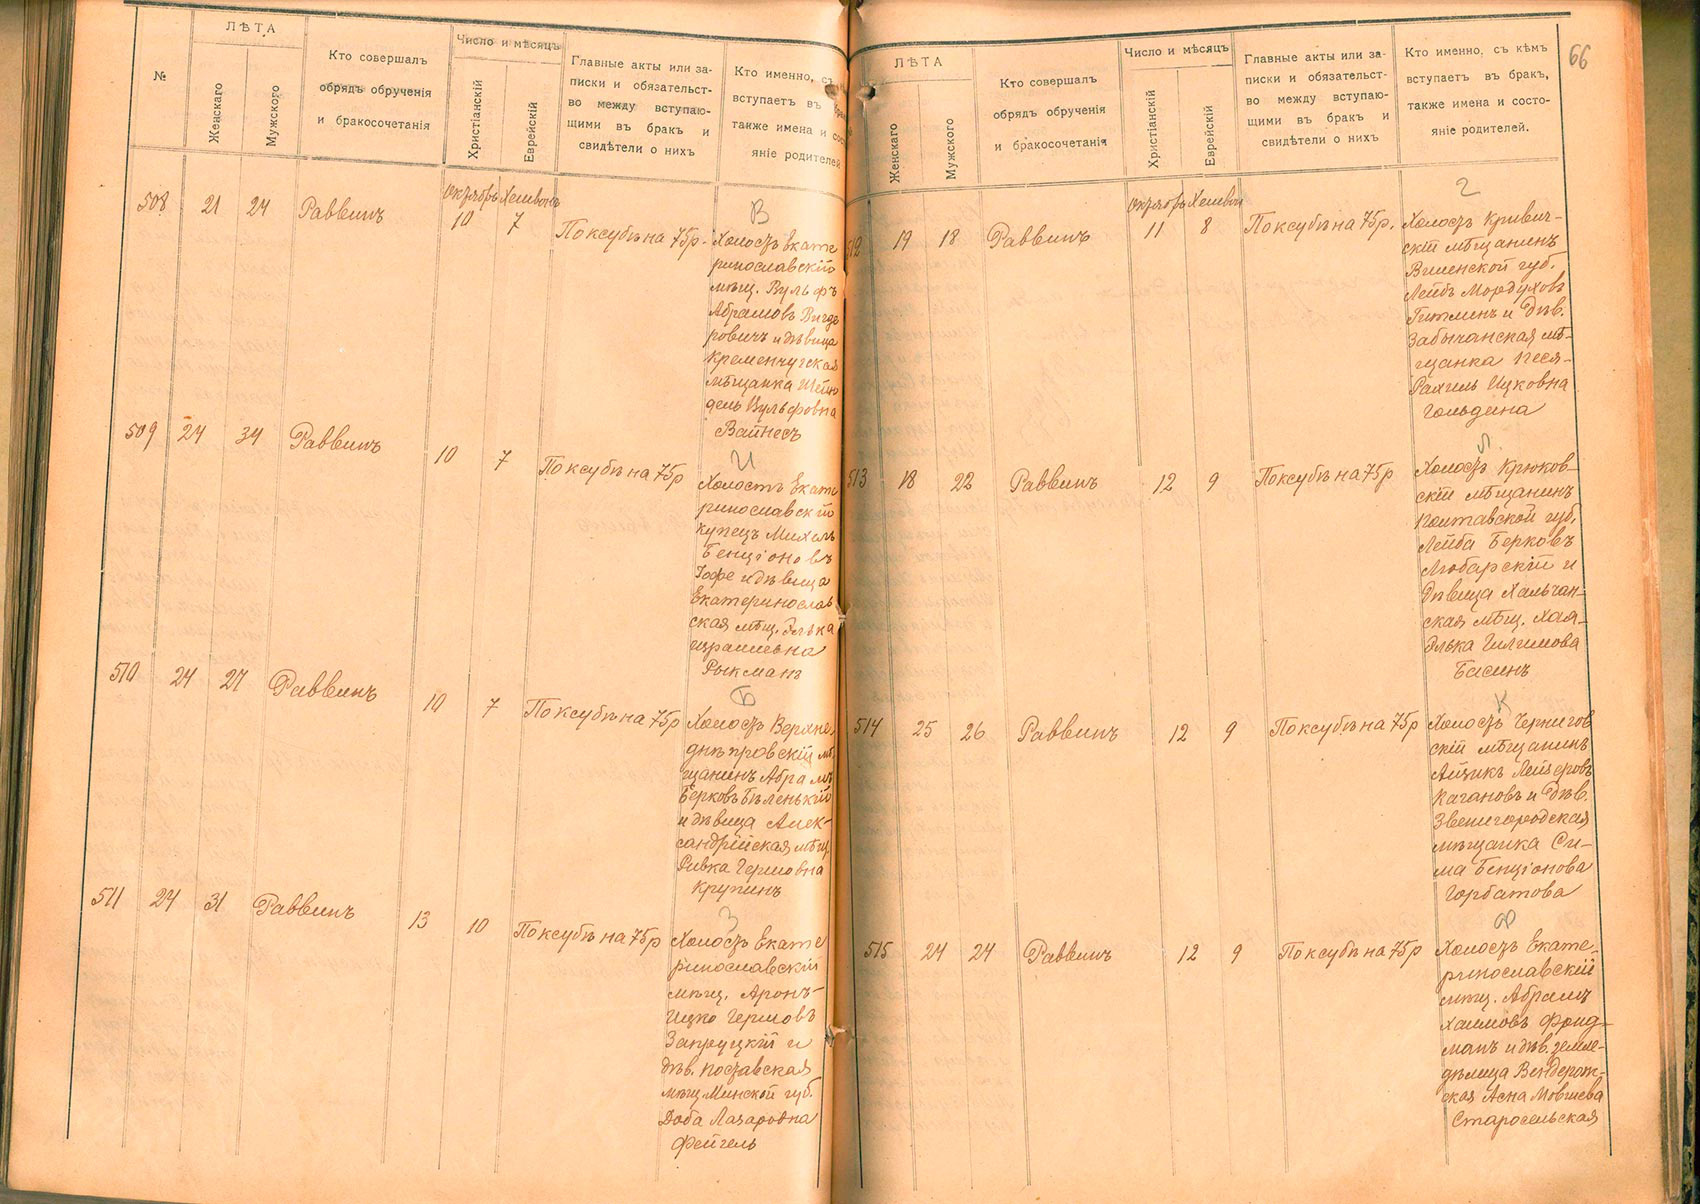 №
ЛѢТА
Женскаго
Мужского
Кто совершалъ
обрядъ обрученія
и бракосочетанія
Число и мѣсяцъ
Христіанскій
Еврейскій
Главные акты или за-
писки и обязательст-
во между вступаю-
щими въ бракъ и
свидѣтели о нихъ
Кто именно, съ
вступаетъ въ
также имена и сос
яніе родителей
508 21 24 Раввинъ
Октябрь Хешвонъ
10 7
По ксубѣ на 75р.
В
Холостъ Екате
ринославскій
мѣщ. Вульфъ
Абрамовъ Вигде
ровичъ и дѣвица
Кременчугская
мѣщанка Шейн
дель Вульфовна
Вайнесъ
509 24 34 Раввинъ 10 7 По ксубѣ на 75р
И
Холостъ Екате
ринославскій
купецъ Михель
Бенціоновъ
Іофе и дѣвица
Екатеринослав
ская мѣщ. Элька
Израилевна
Рыкманъ
510 24 27 Раввинъ 10 7 По ксубѣ на 75р
Б
Холостъ Верхне-
днѣпровскій мѣ
щанинъ Абрамъ
Берковъ Бѣленькій
и дѣвица Алек-
сандрійская мѣщ.
Ривка Гершовна
Крупинъ
511 24 31 Раввинъ 13 10 По ксубѣ на 75р
З
Холостъ Екате
ринославскій
мѣщ. Аронъ-
Ицко Гершовъ
Запруцкій и
дѣв. Поставская
мѣщ. Минской губ.
Доба Лазаровна
Фейгель
66
ЛѢТА
Женскаго
Мужского
Кто совершалъ
обрядъ обрученія
и бракосочетанія
Число и мѣсяцъ
Христіанскій
Еврейскій
Главные акты или за-
писки и обязательст-
во между вступаю-
щими въ бракъ и
свидѣтели о нихъ
Кто именно, съ кѣмъ
вступаетъ въ бракъ,
также имена и состо-
яніе родителей.
512 19 18 Раввинъ
Октябрь Хешвон
11 8
По ксубѣ на 75р.
Г
Холостъ Кривич-
скій мѣщанинъ
Виленской губ.
Лейбъ Мордуховъ
Гитлинъ и дѣв.
Забычанская мѣ-
щанка Песя-
Рахиль Ицковна
Гольдина
513 18 22 Раввинъ 12 9 По ксубѣ на 75р
Л.
Холостъ Крюков-
скій мѣщанинъ
Полтавской губ.
Лейба Берковъ
Любарскій и
дѣвица Хальчан-
ская мѣщ. Хая-
Элька Гилимова
Басинъ
514 25 26 Раввинъ 12 9 По ксубѣ на 75р
К
Холостъ Чернигов
скій мѣщанинъ
Айзикъ Лейзеровъ
Кагановъ и дѣв.
Звенигородская
мѣщанка Си-
ма Бенціонова
Горбатова
515 24 24 Раввинъ 12 9 По ксубѣ на 75р
Ф
Холостъ Екате-
ринославскій
мѣщ. Абрамъ
Хаимовъ Фрид-
манъ и дѣв. земле-
дѣлица
Асна Мовшева
Старосельская